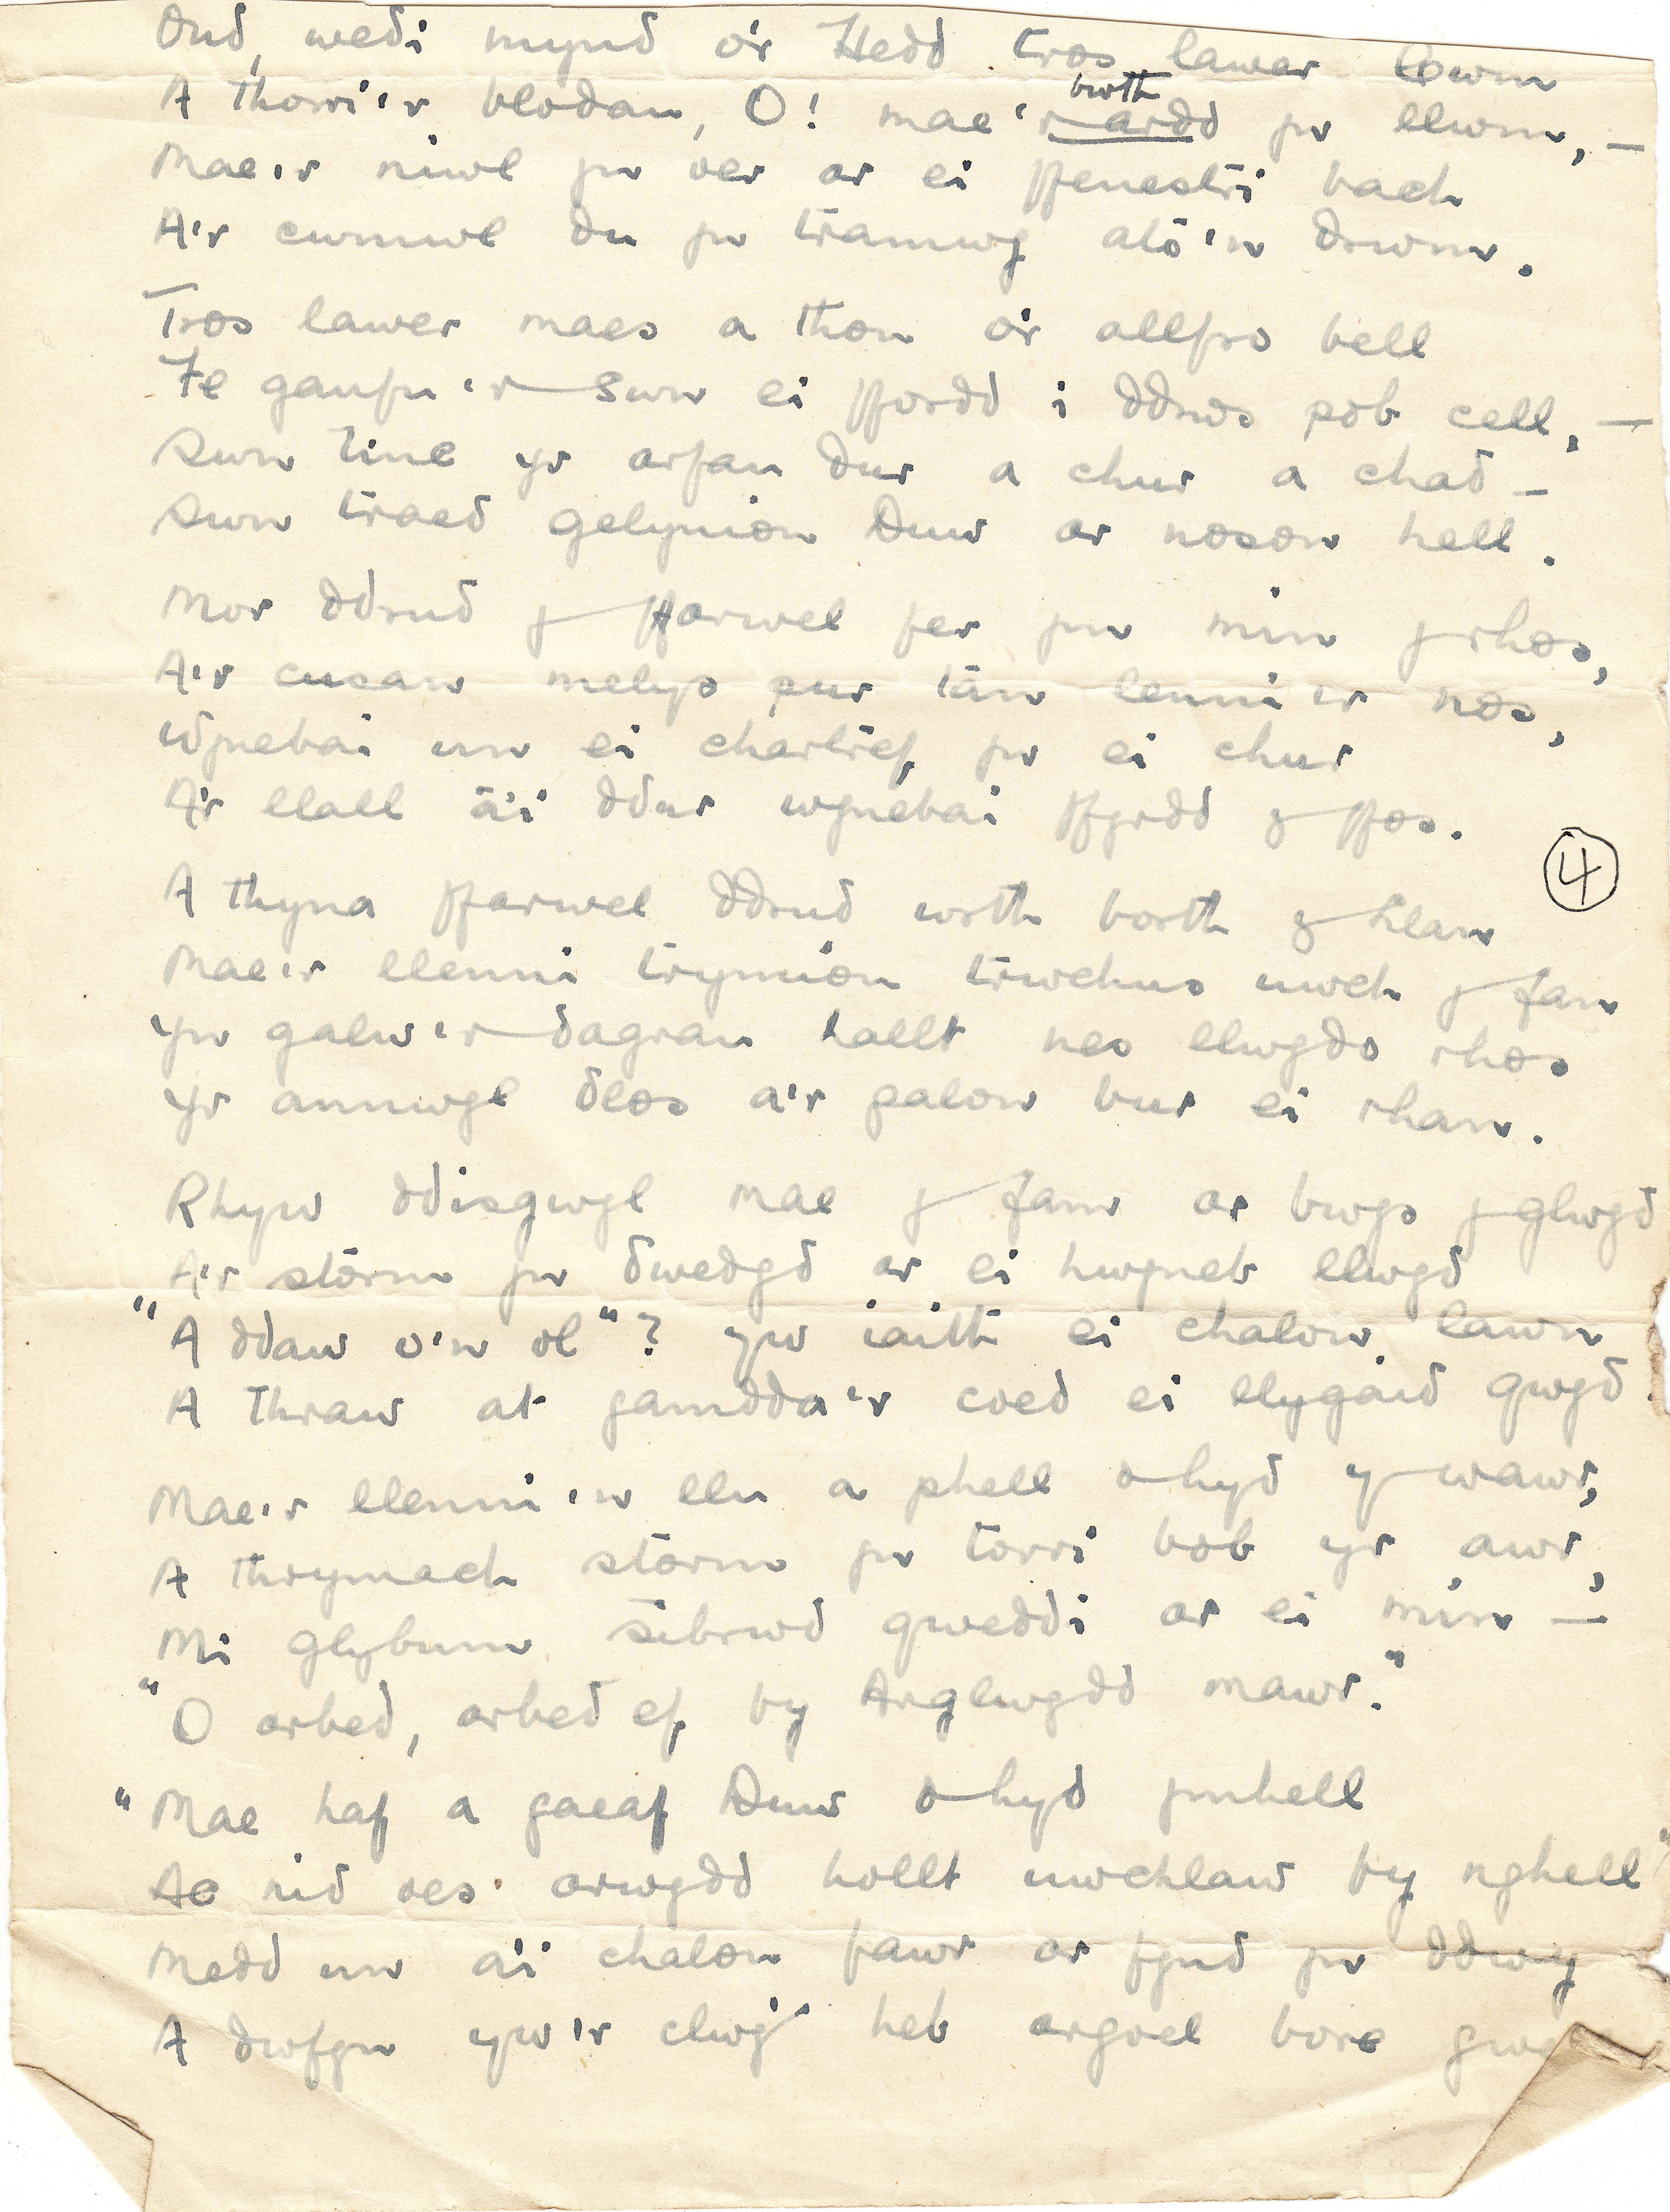 Ond, wedi mynd o'r Hedd tros lawer lawn
bwth
A thorri'r blodau, O! mae'r ardd yn llwm, —
Mae'r niwl yn oer ar ei ffenestri bach
A'r cwmwl du yn tramwy ato'n drwm.
Tros lawer maes a thon o'r allfro bell
Fe ganfu'r swn ei ffordd i ddrws pob cell, —
Swn tinc yr arfau dur a chur a chad —
Swn traed gelynion Duw ar noson hell.
Mor ddrud y ffarwel fer yn min y rhos,
A'r cusan melys pur tan lenni'r nos,
Wynebai un ei chartref yn ei chur
A'r llall â'i ddur wynebai ffyrdd y ffos.
4
A thyna ffarwel ddrud wrth borth y Llan
Mae'r llenni trymion trwchus uwch y fan
Yn galw'r dagrau hallt nes llwydo rhos
Yr annwyl dlos a'r galon bur ei rhan.
Rhyw ddisgwyl mae y fam ar bwys y glwyd
A'r storm yn dwedyd ar ei hwyneb llwyd
"A ddaw o'n ol"? yw iaith ei chalon lawn
A thraw at gamdda'r coed ei llygaid gwyd.
Mae'r llenni'n llu a phell o hyd y wawr,
A thrymach storm yn torri bob yr awr,
Mi glybum sibrwd gweddi ar ei min —
"O arbed, arbed ef fy Arglwydd mawr."
"Mae haf a gaeaf Duw o hyd ymhell
Ac nid oes arwydd hollt uwchlaw fy nghell"
Medd un a'i chalon fawr ar fynd yn ddwy
A dwfyn yw'r clwy' heb argoel bore